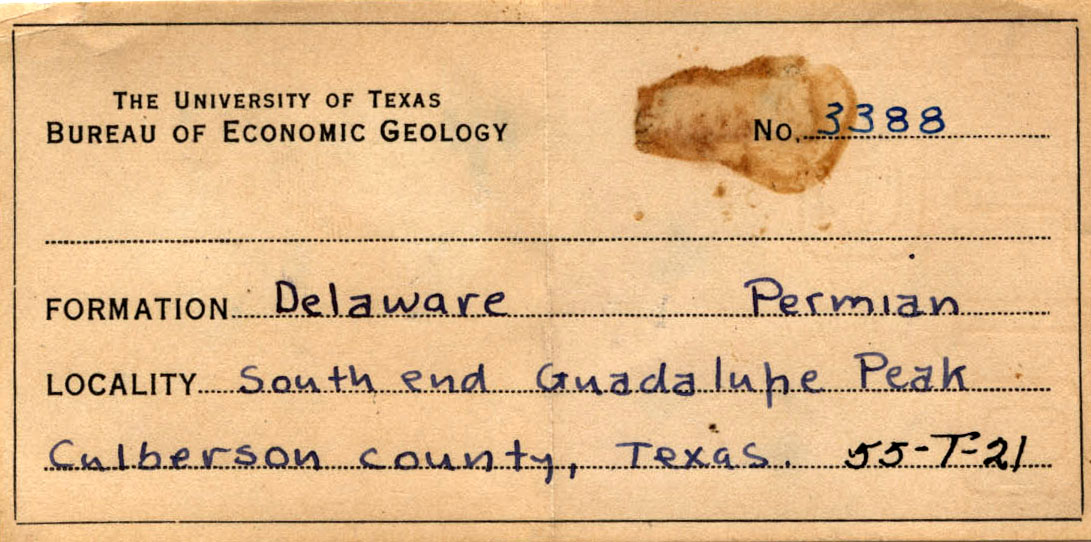 THE UNIVERSITY OF TEXAS
BUREAU OF ECONOMIC GEOLOGY
No. 3388
FORMATION Delaware Permian
LOCALITY South end Guadalupe Peak
Culberson county, Texas. 55-T-21